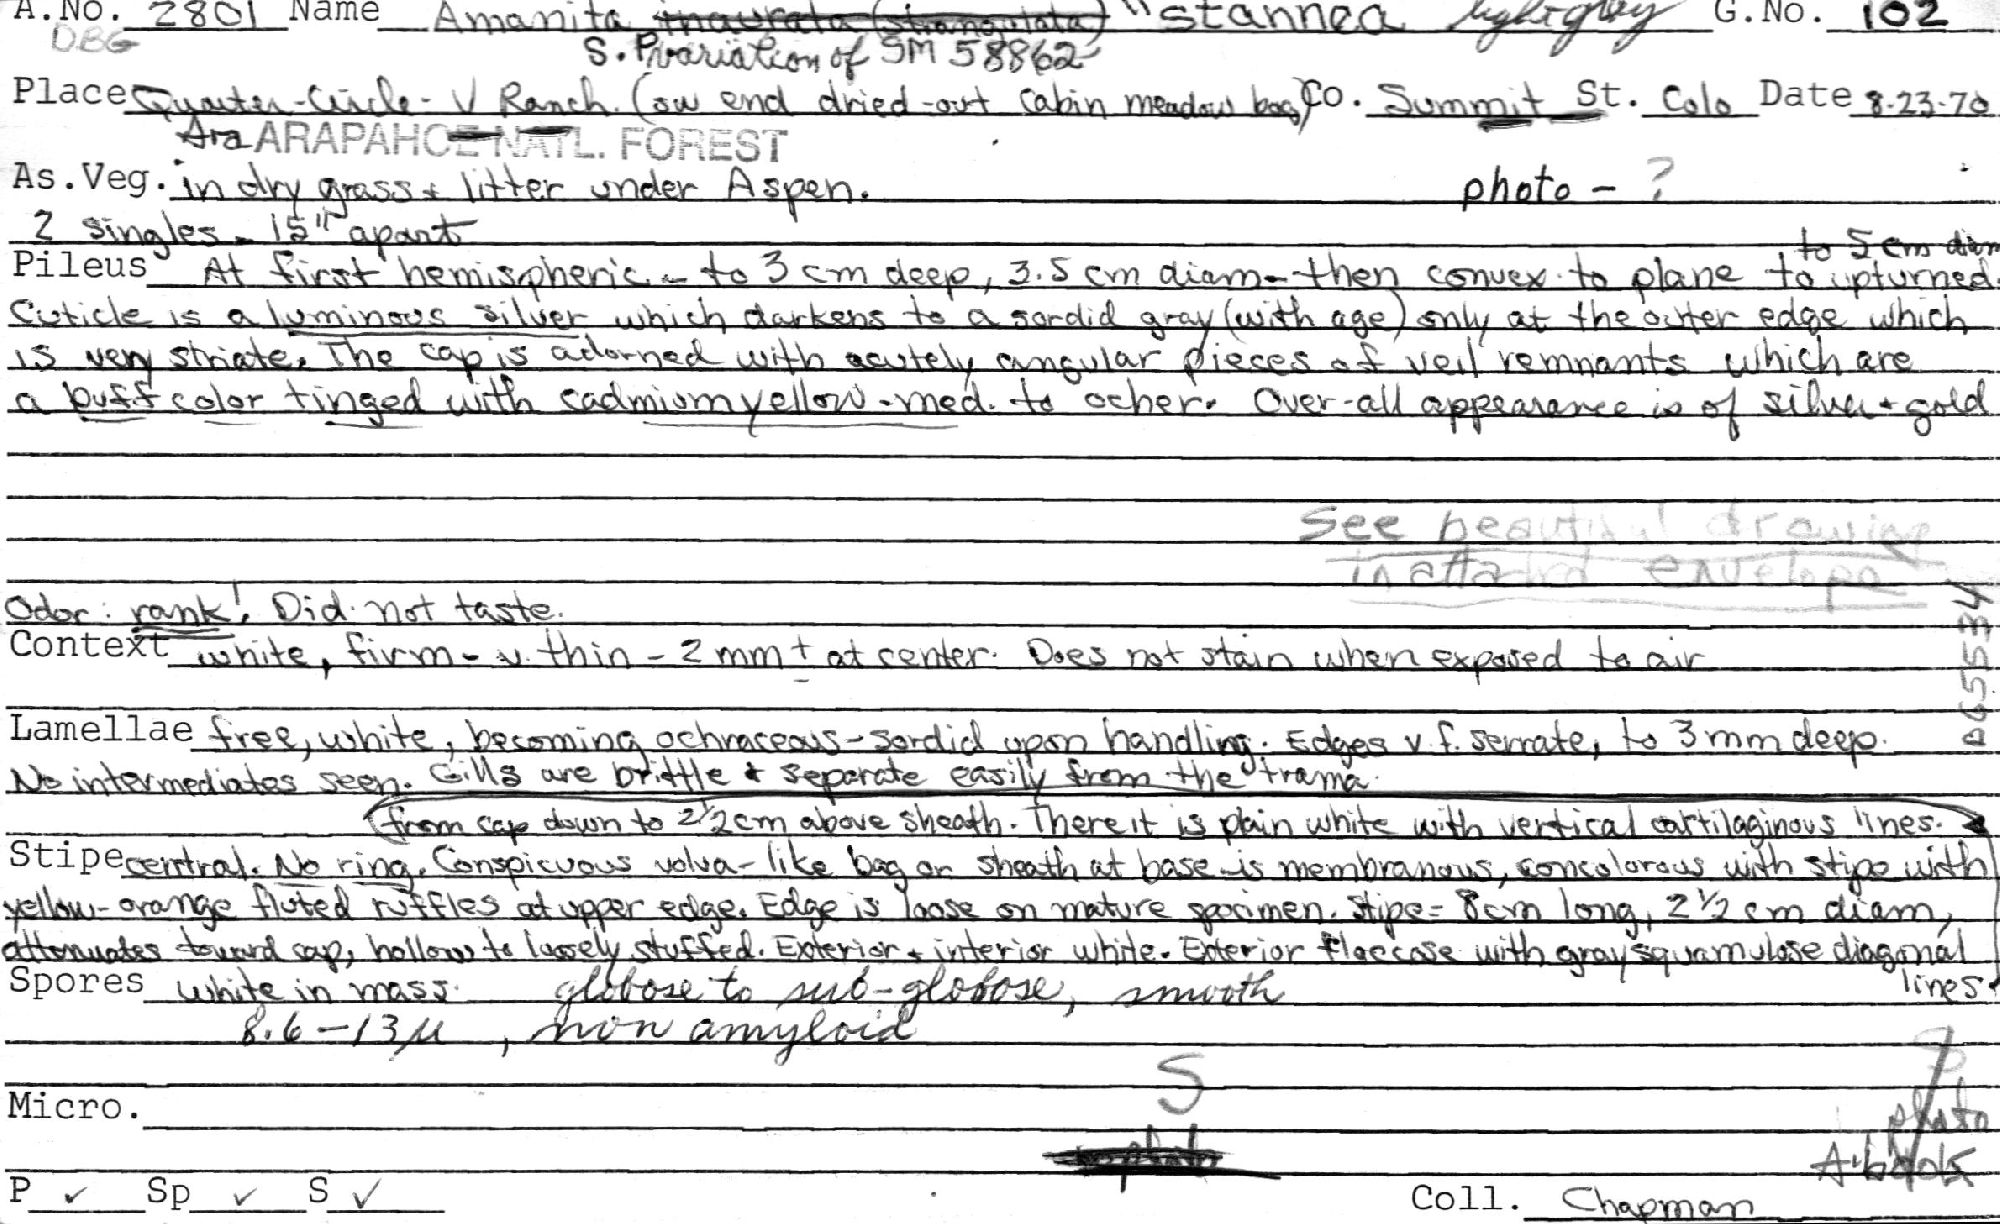 A.No. 2801 Name Amanita inaurata (strangulata) "stannea light gray G.No. 102
DBG S. P. variation of SM 58862
Place Quarter-Circle-V Ranch. (ow end dried-out cabin meadow bog) Co. Summit St. Colo Date 8-23-70
Ara ARAPAHOE NATL. FOREST
As.Veg. in dry grass + litter under Aspen. photo - ?
2 singles - 15" apart
to 5 cm diam
Pileus At first hemispheric - to 3 cm deep, 3.5 cm diam - then convex to plane to upturned.
Cuticle is a luminous silver which darkens to a sordid gray (with age) only at the outer edge which
is very striate. The cap is adorned with acutely angular pieces of veil remnants which are
a buff color tinged with cadmium yellow-med. to ocher. Over-all appearance is of silver + gold
See beautiful drawing
in attached envelope
Odor: rank! Did not taste.
Context white, firm - v. thin - 2 mm ± at center. Does not stain when exposed to air
Lamellae free, white, becoming ochraceous-sordid upon handling. Edges v. f. serrate, to 3 mm deep.
No intermediates seen. Gills are brittle & separate easily from the trama.
(from cap down to 2 1/2 cm above sheath. There it is plain white with vertical cartilaginous lines.
Stipe central. No ring. Conspicuous volva-like bag or sheath at base is membranous, concolorous with stipe with
yellow-orange fluted ruffles at upper edge. Edge is loose on mature specimen. Stipe = 8cm long, 2 1/2 cm diam,
attenuates toward cap, hollow to loosely stuffed. Exterior + interior white. Exterior floccose with gray squamulose diagonal
lines.
Spores white in mass. globose to sub-globose, smooth
8.6-13 µ, non amyloid
S
Micro.
photo
P ✓ Sp ✓ S ✓
Coll. Chapman